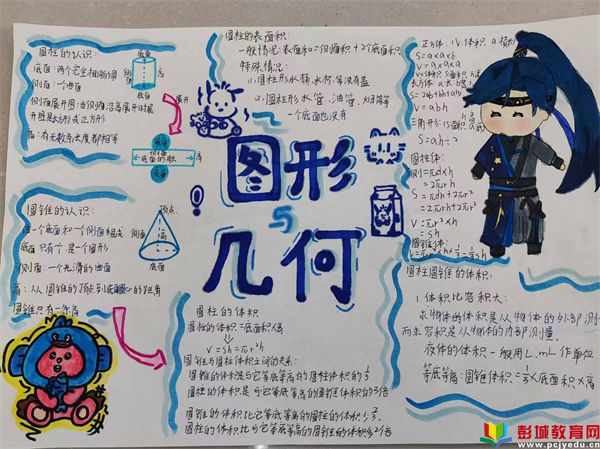 圆柱的认识:
底面:两个完全相同的圆
侧面:一个曲面
侧面展开图:当侧面沿高展开时展
开图是长方形或正方形
高:有无数条长度都相等
底面
侧面
高
底面
展开
底面
侧面
底面的周长
高
底面
圆柱的表面积:
一般情况:表面积=侧面积+2个底面积
特殊情况:
(1).圆柱形水桶,水杯等没有盖
(2).圆柱形水管、油管、烟囱等
一个底面也没有
图形
与
几何
正方体:(V:体积 a:棱长)
S=a×a×6
V=a×a×a
长方体
V=abh
三角形
S=ah÷2
圆柱体:
S侧=πd×h
=2πr×h
=2πrh+2πr²
V=πr²×h
=sh
圆锥体:
V=πr²×h×1/3=1/3sh
圆锥的认识:
由一个底面和一个侧面组成
底面:只有一个,是一个圆形
侧面:一个光滑的曲面
高:从圆锥的顶点到底面圆心的距离
圆锥只有一条高
顶点
侧面
高
底面
圆柱的体积
圆柱的体积=底面积×高
V=sh=πr²h
圆锥与圆柱体积之间的关系:
圆锥的体积是与它等底等高的圆柱体积的1/3
圆柱的体积是与它等底等高的圆锥体积的3倍
圆锥的体积比它等底等高的圆柱的体积少2/3.
圆柱的体积比与它等底等高的圆锥的体积多2倍
圆柱圆锥的体积:
1.体积比容积大:
求物体的体积是从物体的外部测
而求容积是从物体的内部测量.
液体的体积一般用L.mL作单位
等底等高:圆锥体积=1/3×底面积×高
彭城教育网
www.pcjyedu.cn